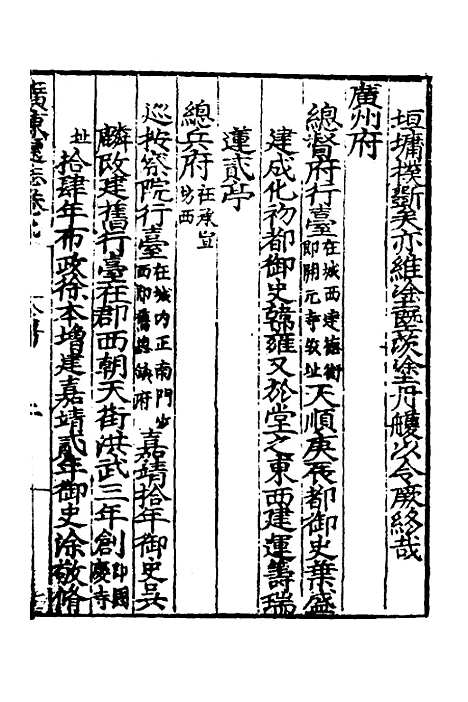 垣墉撲斲矣亦維塗塈茨塗丹艧以令厥終哉
廣州府
總督府行臺在城西建德街即開元寺故址天順庚辰都御史葉盛
建成化初都御史韓雍又於堂之東西建運籌瑞
蓮貳亭
總兵府在承宣坊西
巡按察院行臺在城内正南門少西即舊總鎮府嘉靖拾年御史吳
麟改建舊行臺在郡西朝天街洪武三年創即國慶寺
址拾肆年布政徐本增建嘉靖貳年御史涂敬脩
廣東通志卷